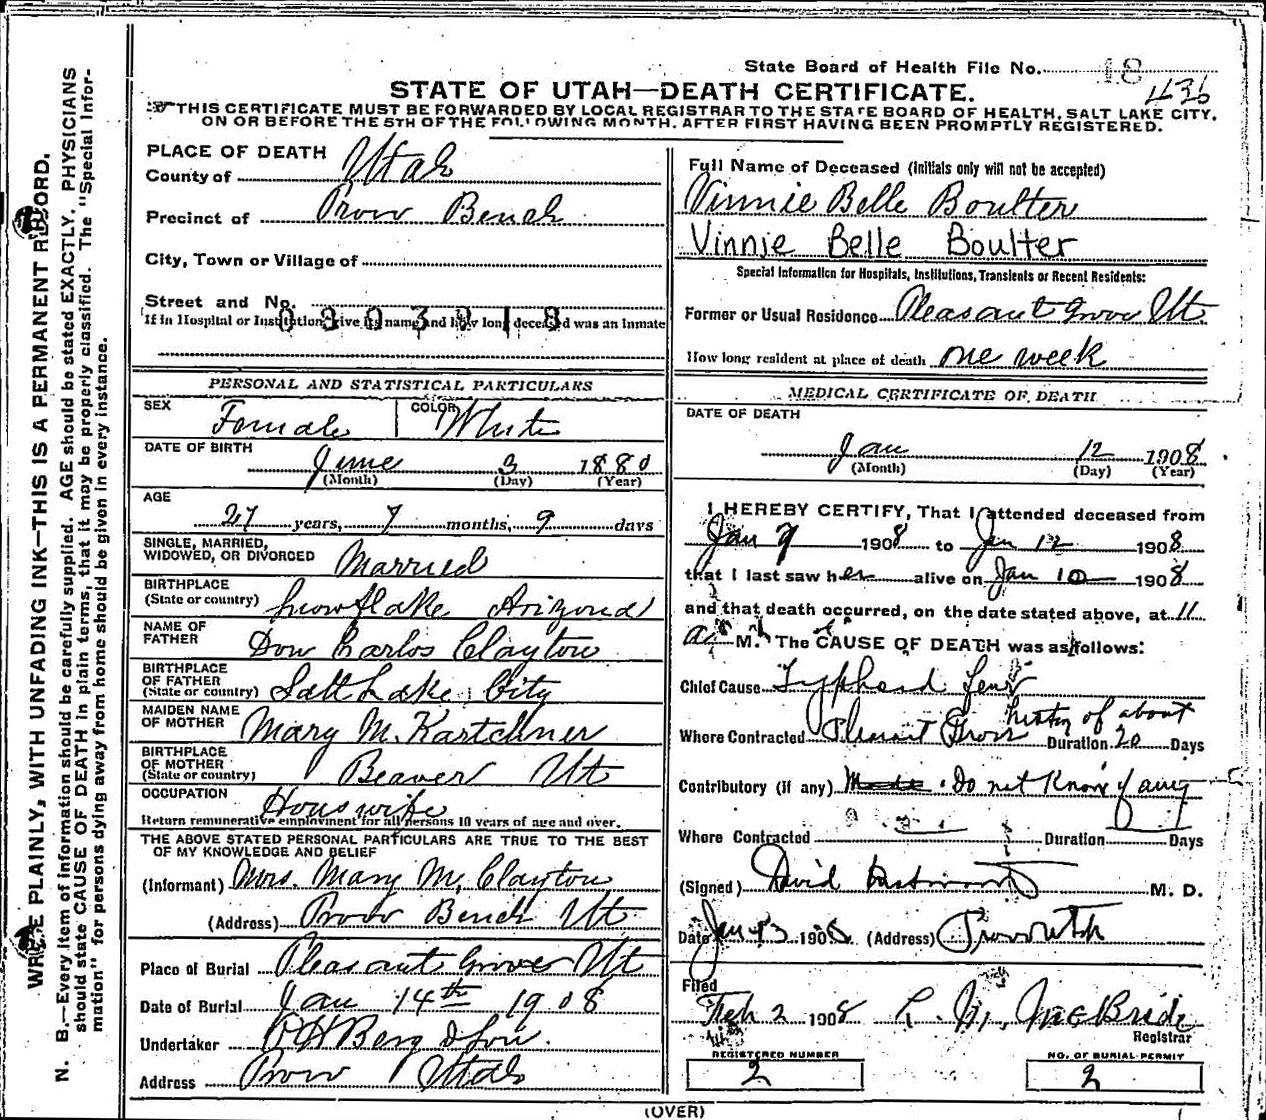 State Board of Health File No. 18
436
STATE OF UTAH—DEATH CERTIFICATE.
THIS CERTIFICATE MUST BE FORWARDED BY LOCAL REGISTRAR TO THE STATE BOARD OF HEALTH, SALT LAKE CITY,
ON OR BEFORE THE 5TH OF THE FOLLOWING MONTH, AFTER FIRST HAVING BEEN PROMPTLY REGISTERED.
WRITE PLAINLY, WITH UNFADING INK—THIS IS A PERMANENT RECORD.
N. B.—Every item of information should be carefully supplied. AGE should be stated EXACTLY. PHYSICIANS
should state CAUSE OF DEATH in plain terms, that it may be properly classified. The "Special Infor-
mation" for persons dying away from home should be given in every instance.
PLACE OF DEATH
County of Utah
Precinct of Provo Bench
City, Town or Village of
Street and No.
If in Hospital or Institution give its name and how long deceased was an inmate
0303218
PERSONAL AND STATISTICAL PARTICULARS
SEX Female COLOR White
DATE OF BIRTH
June 3 1880
(Month) (Day) (Year)
AGE
27 years, 7 months, 9 days
SINGLE, MARRIED,
WIDOWED, OR DIVORCED Married
BIRTHPLACE
(State or country) Snowflake Arizona
NAME OF
FATHER Don Carlos Clayton
BIRTHPLACE
OF FATHER
(State or country) Salt Lake City
MAIDEN NAME
OF MOTHER Mary M. Kartchner
BIRTHPLACE
OF MOTHER
(State or country) Beaver Ut
OCCUPATION Houswife
Return remunerative employment for all persons 10 years of age and over.
THE ABOVE STATED PERSONAL PARTICULARS ARE TRUE TO THE BEST
OF MY KNOWLEDGE AND BELIEF
(Informant) Mrs. Mary M. Clayton
(Address) Provo Bench Ut
Place of Burial Pleasant Grove Ut
Date of Burial Jan 14th 1908
Undertaker O H Berg & Son.
Address Provo Utah
Full Name of Deceased (Initials only will not be accepted)
Vinnie Belle Boulter
Vinnie Belle Boulter
Special Information for Hospitals, Institutions, Transients or Recent Residents:
Former or Usual Residence Pleasant Grove Ut.
How long resident at place of death one week
MEDICAL CERTIFICATE OF DEATH
DATE OF DEATH
Jan 12 1908
(Month) (Day) (Year)
I HEREBY CERTIFY, That I attended deceased from
Jan 9 1908 to Jan 12 1908
that I last saw her alive on Jan 10 1908
and that death occurred, on the date stated above, at 11
a. M. The CAUSE OF DEATH was as follows:
Chief Cause Typhoid Fever
history of about
Where Contracted Pleasant Grove Duration 20 Days
Contributory (if any) Do not Know of any
Where Contracted Duration Days
(Signed) David Westwood M. D.
Date Jan 13 1908 (Address) Provo Utah
Filed
Feb 2 1908 McBride
Registrar
REGISTERED NUMBER
2
NO. OF BURIAL PERMIT
2
(OVER)